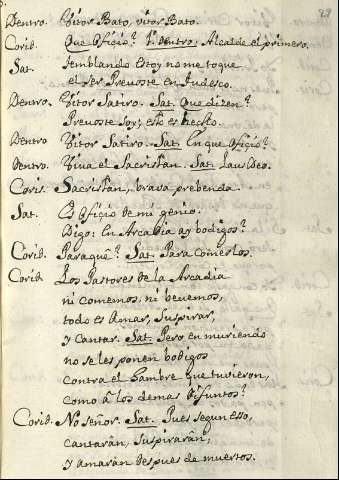 29
Dentro. Vitor Bato, vitor Bato.
Corib. Que Ofiçio? Dentro. Alcalde el primero.
Sat. temblando Estoy no me toque
el ser Prevoste en Iudesco.
Dentro. Vitor Satiro. Sat. Que dizen?
Prevoste soy; esto es hecho.
Dentro Vitor Satiro. Sat. En que Ofiçio?
Dentro. Viva el Sacristan. Sat. Laus Deo.
Coris. Sacristan, brava prebenda.
Sat. Es Ofiçio de mi genio.
Digo: En Arcadia ay bodigos?
Corib. Paraquê? Sat. Para comerlos.
Corib. Los Pastores de la Arcadia
ni comemos, ni bevemos,
todo es Amar, Suspirar,
y Cantar. Sat. Pero en muriendo
no se les ponen bodigos
contra el hambre que tuvieron,
como â los demas difuntos?
Corib. No señor. Sat. Pues segun esso,
cantarán, suspirarán,
y amarán despues de muertos.